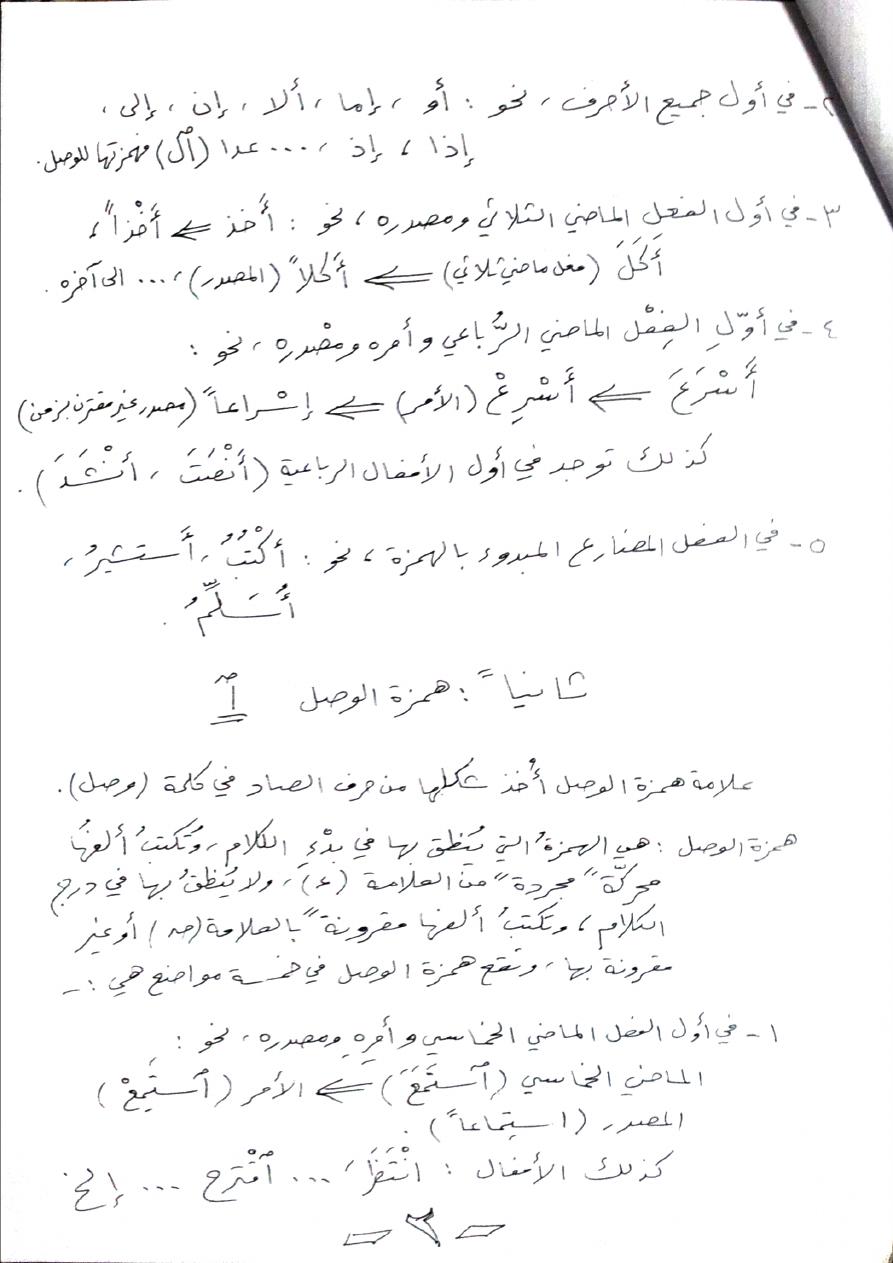 ٢- في أول جميع الأحرف، نحو : أو ، إما ، ألا ، إن ، إلى ،
إذا ، إذ ، ... عدا (ٱل) فهمزتها للوصل.
٣- في أول الفعل الماضي الثلاثي ومصدره ، نحو : أَخذ ⇐ أَخْذاً ،
أَكَلَ (فعل ماضي ثلاثي) ⇐ أَكلاً (المصدر) ، ... الى آخره .
٤- في أوّلِ الفِعْل الماضي الرُّباعي وأمره ومصْدره ، نحو :
أَسْرَعَ ⇐ أَسْرِعْ (الأمر) ⇐ إسْراعاً (مصدر غير مقترن بزمن)
كذلك توجد في أول الأفعال الرباعية (أنْصَتَ ، أنْشَدَ) .
٥- في الفعل المضارع المبدوء بالهمزة ، نحو : أكْتُبُ ، أَستشيرُ ،
أُسَلِّمُ .
ثانياً : همزة الوصل ٱ
علامة همزة الوصل أُخذ شكلها من حرف الصاد في كلمة (وصل) .
همزة الوصل : هي الهمزةُ التي يُنطق بها في بدْءِ الكلام ، وتُكتبُ ألفهُا
محركّة ً مجردة ً من العلامة (ء) ، ولا يُنطقُ بها في درج
الكلام ، وتكتبُ ألفها مقرونة ً بالعلامة (صـ) أو غير
مقرونة بها ، وتقع همزة الوصل في خمسة مواضع هي :-
١- في أول الفعل الماضي الخماسي وأمرِهِ ومصدره ، نحو :
الماضي الخماسي (ٱستَمَعَ) ⇐ الأمر (ٱستَمِعْ)
المصدر (استِماعاً) .
كذلك الأفعال : انْتَظَرَ ، ... ٱقْترح ... إلخ
-٢-